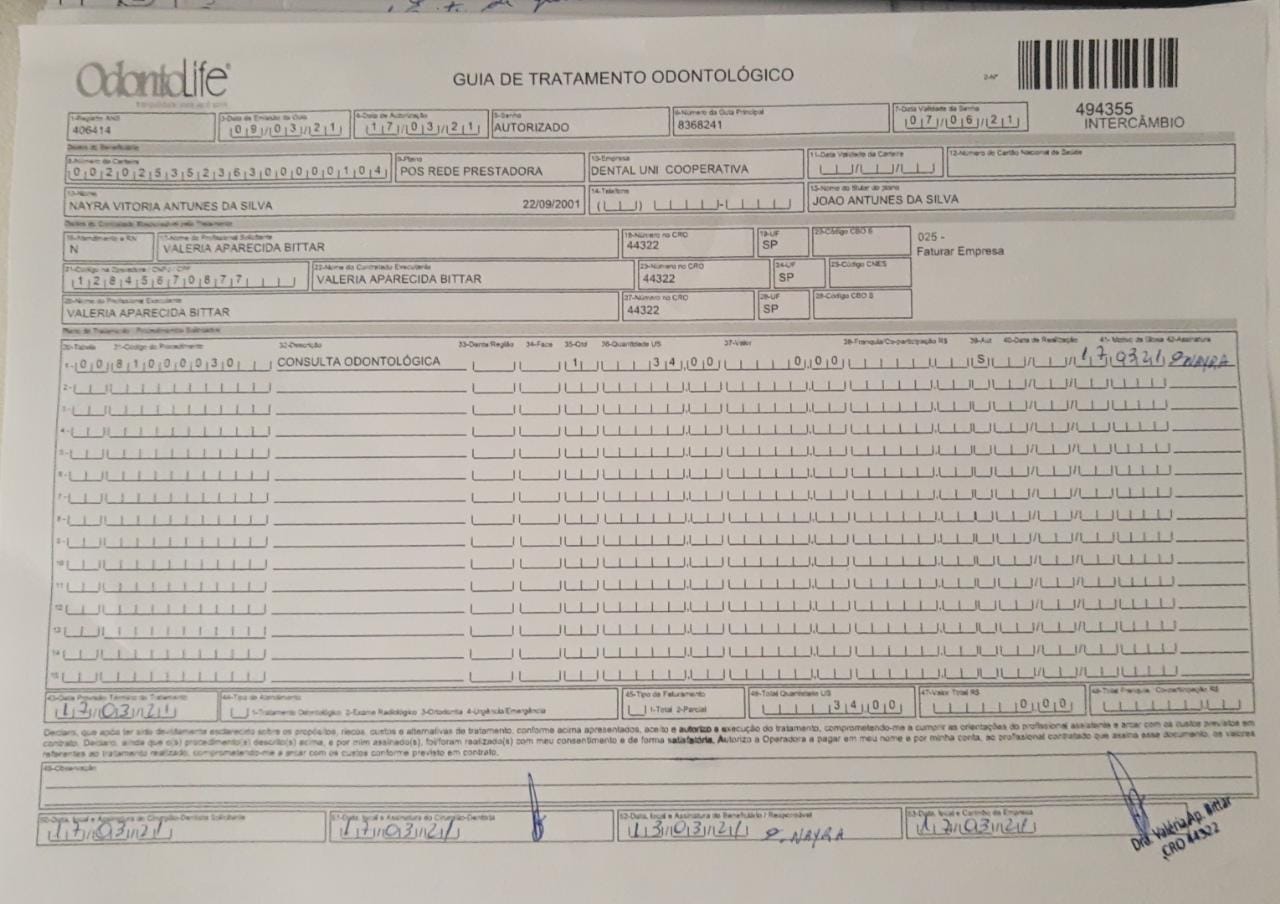 OdontoLife
GUIA DE TRATAMENTO ODONTOLÓGICO
2-Nº
494355
INTERCÂMBIO
1-Registro ANS
406414
3-Data de Emissão da Guia
09/03/21
4-Data de Autorização
17/03/21
5-Senha
AUTORIZADO
6-Número da Guia Principal
8368241
7-Data Validade da Senha
07/06/21
Dados do Beneficiário
8-Número da Carteira
00202535236300000104
9-Plano
POS REDE PRESTADORA
10-Empresa
DENTAL UNI COOPERATIVA
11-Data Validade da Carteira
12-Número do Cartão Nacional de Saúde
13-Nome
NAYRA VITORIA ANTUNES DA SILVA 22/09/2001
14-Telefone
15-Nome do titular do plano
JOAO ANTUNES DA SILVA
Dados do Contratado Responsável pelo Tratamento
16-Atendimento a RN
N
17-Nome do Profissional Solicitante
VALERIA APARECIDA BITTAR
18-Número no CRO
44322
19-UF
SP
20-Código CBO S
025 -
Faturar Empresa
21-Código na Operadora / CNPJ / CPF
12845670877
22-Nome do Contratado Executante
VALERIA APARECIDA BITTAR
23-Número no CRO
44322
24-UF
SP
25-Código CNES
26-Nome do Profissional Executante
VALERIA APARECIDA BITTAR
27-Número no CRO
44322
28-UF
SP
29-Código CBO S
Plano de Tratamento / Procedimentos Solicitados
30-Tabela 31-Código do Procedimento 32-Descrição 33-Dente/Região 34-Face 35-Qtd 36-Quantidade US 37-Valor 38-Franquia/Co-participação R$ 39-Aut 40-Data de Realização 41-Motivo da Glosa 42-Assinatura
1- 00 81000030 CONSULTA ODONTOLÓGICA 1 34,00 0,00 S 170321 NAYRA
2-
3-
4-
5-
6-
7-
8-
9-
10
11
12
13
14
15
43-Data Previsão Término do Tratamento
17/03/21
44-Tipo de Atendimento
1-Tratamento Odontológico 2-Exame Radiológico 3-Ortodontia 4-Urgência/Emergência
45-Tipo de Faturamento
1-Total 2-Parcial
46-Total Quantidade US
34,00
47-Valor Total R$
0,00
48-Total Franquia / Co-participação R$
Declaro, que após ter sido devidamente esclarecido sobre os propósitos, riscos, custos e alternativas de tratamento, conforme acima apresentados, aceito e autorizo a execução do tratamento, comprometendo-me a cumprir as orientações do profissional assistente e arcar com os custos previstos em
contrato. Declaro, ainda que o(s) procedimento(s) descrito(s) acima, e por mim assinado(s), foi/foram realizado(s) com meu consentimento e de forma satisfatória. Autorizo a Operadora a pagar em meu nome e por minha conta, ao profissional contratado que assina esse documento, os valores
referentes ao tratamento realizado, comprometendo-me a arcar com os custos conforme previsto em contrato.
49-Observação
50-Data, local e Assinatura do Cirurgião-Dentista Solicitante
17/03/21
51-Data, local e Assinatura do Cirurgião-Dentista
17/03/21
52-Data, local e Assinatura do Beneficiário / Responsável
13/03/21 NAYRA
53-Data, local e Carimbo da Empresa
17/03/21
Dra. Valéria Ap. Bittar
CRO 44322